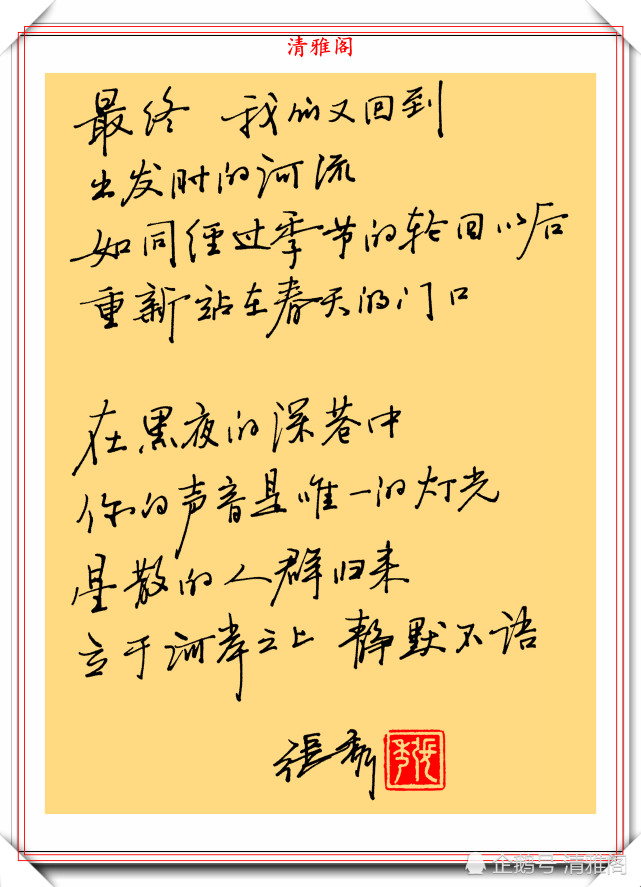 清雅阁
最终 我们又回到
出发时的河流
如同经过季节的轮回以后
重新站在春天的门口
在黑夜的深巷中
你的声音是唯一的灯光
星散的人群归来
立于河岸之上 静默不语
張秀
企鹅号 清雅阁